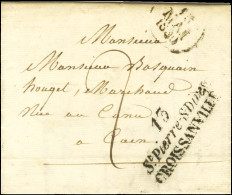 MAI
Monsieur
Monsieur Bosquain
Rouget, Marchand
Rue au Canu
a Caen
2
13
St Pierre-s-Dives
CROISSANVILLE